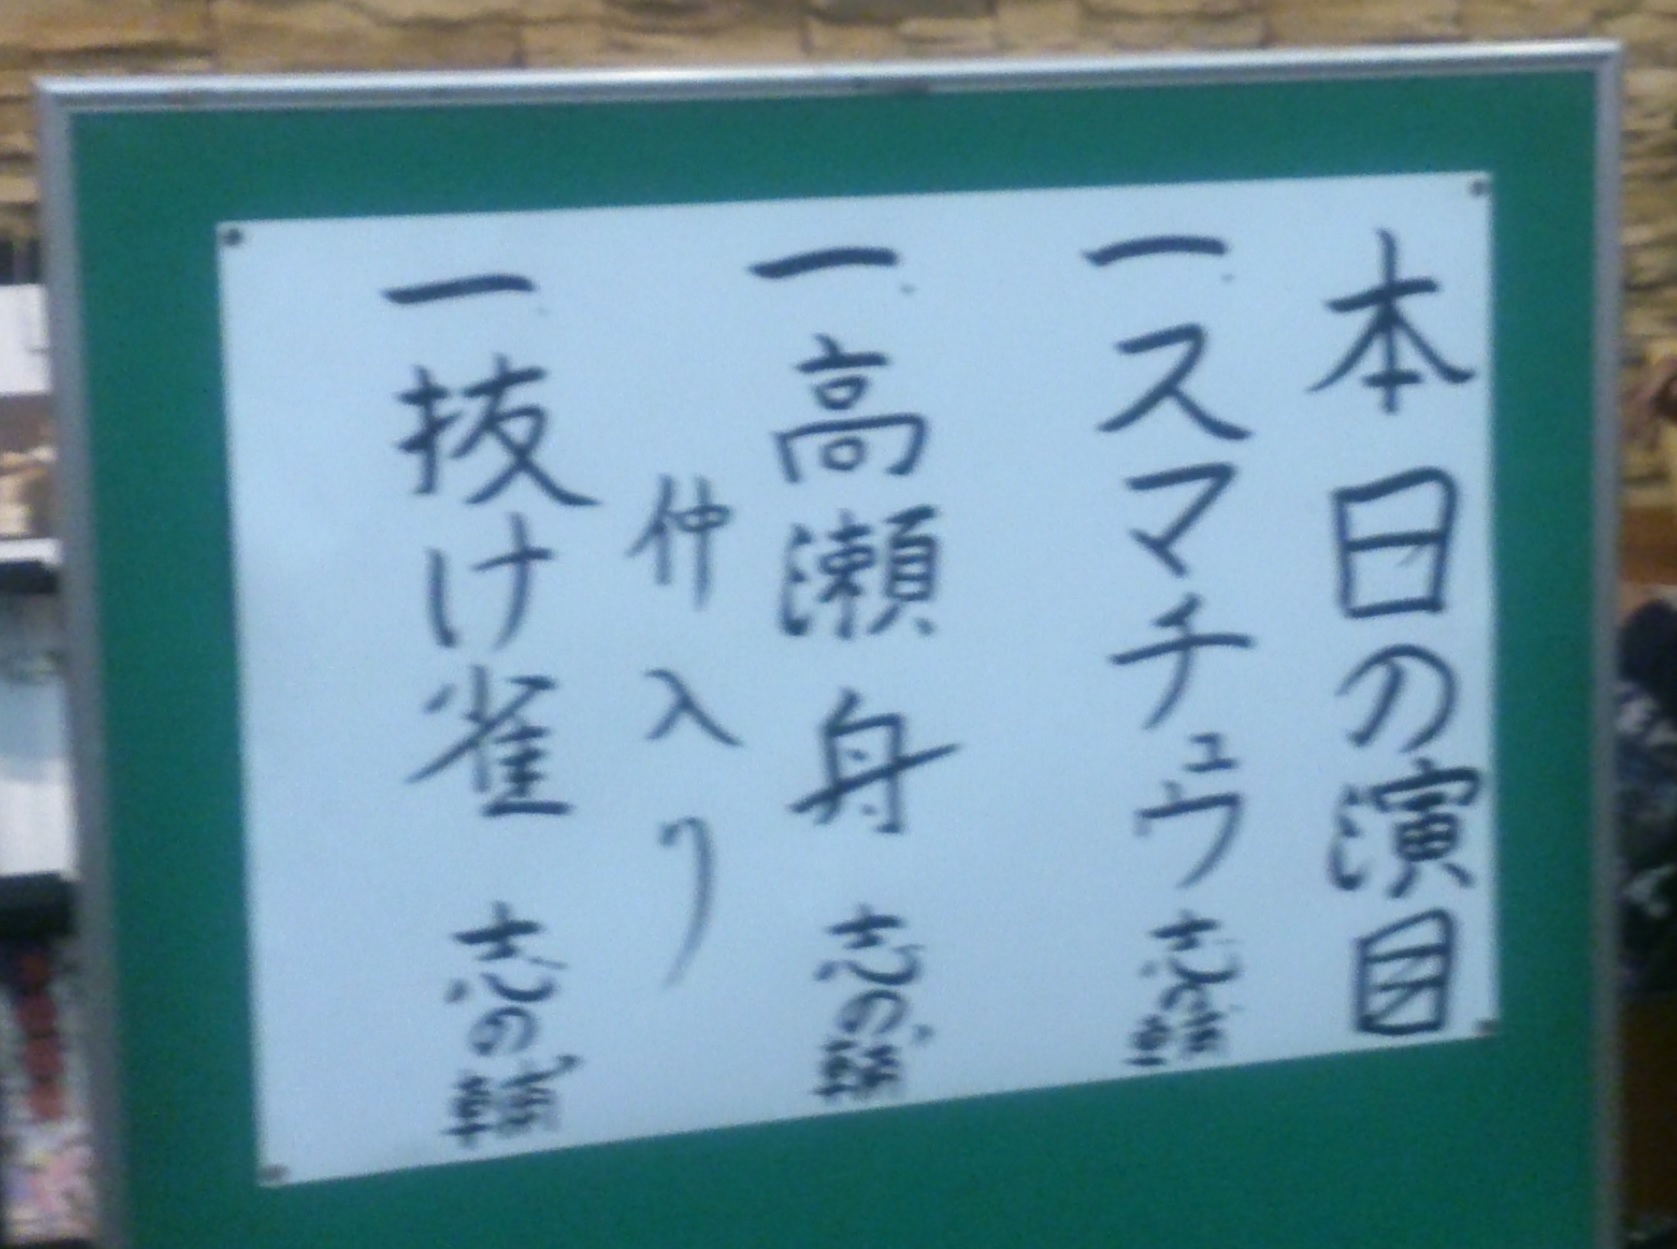 本日の演目
一、スマチュウ 志の輔
一、高瀬舟 志の輔
仲入り
一、抜け雀 志の輔